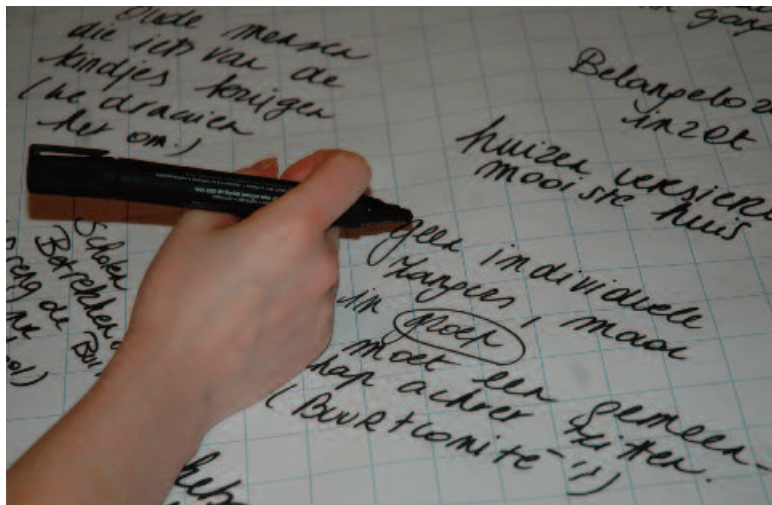 Oude mensen
die iets van de
kindjes krijgen
(we draaien
het om.)
Belangeloze
inzet
huizen versieren
mooiste huis
geen individuele
zangers, maar
in groep
moet een gemeen-
schap achter zitten.
(BUURTcomité's)
Scholen
Betrekken